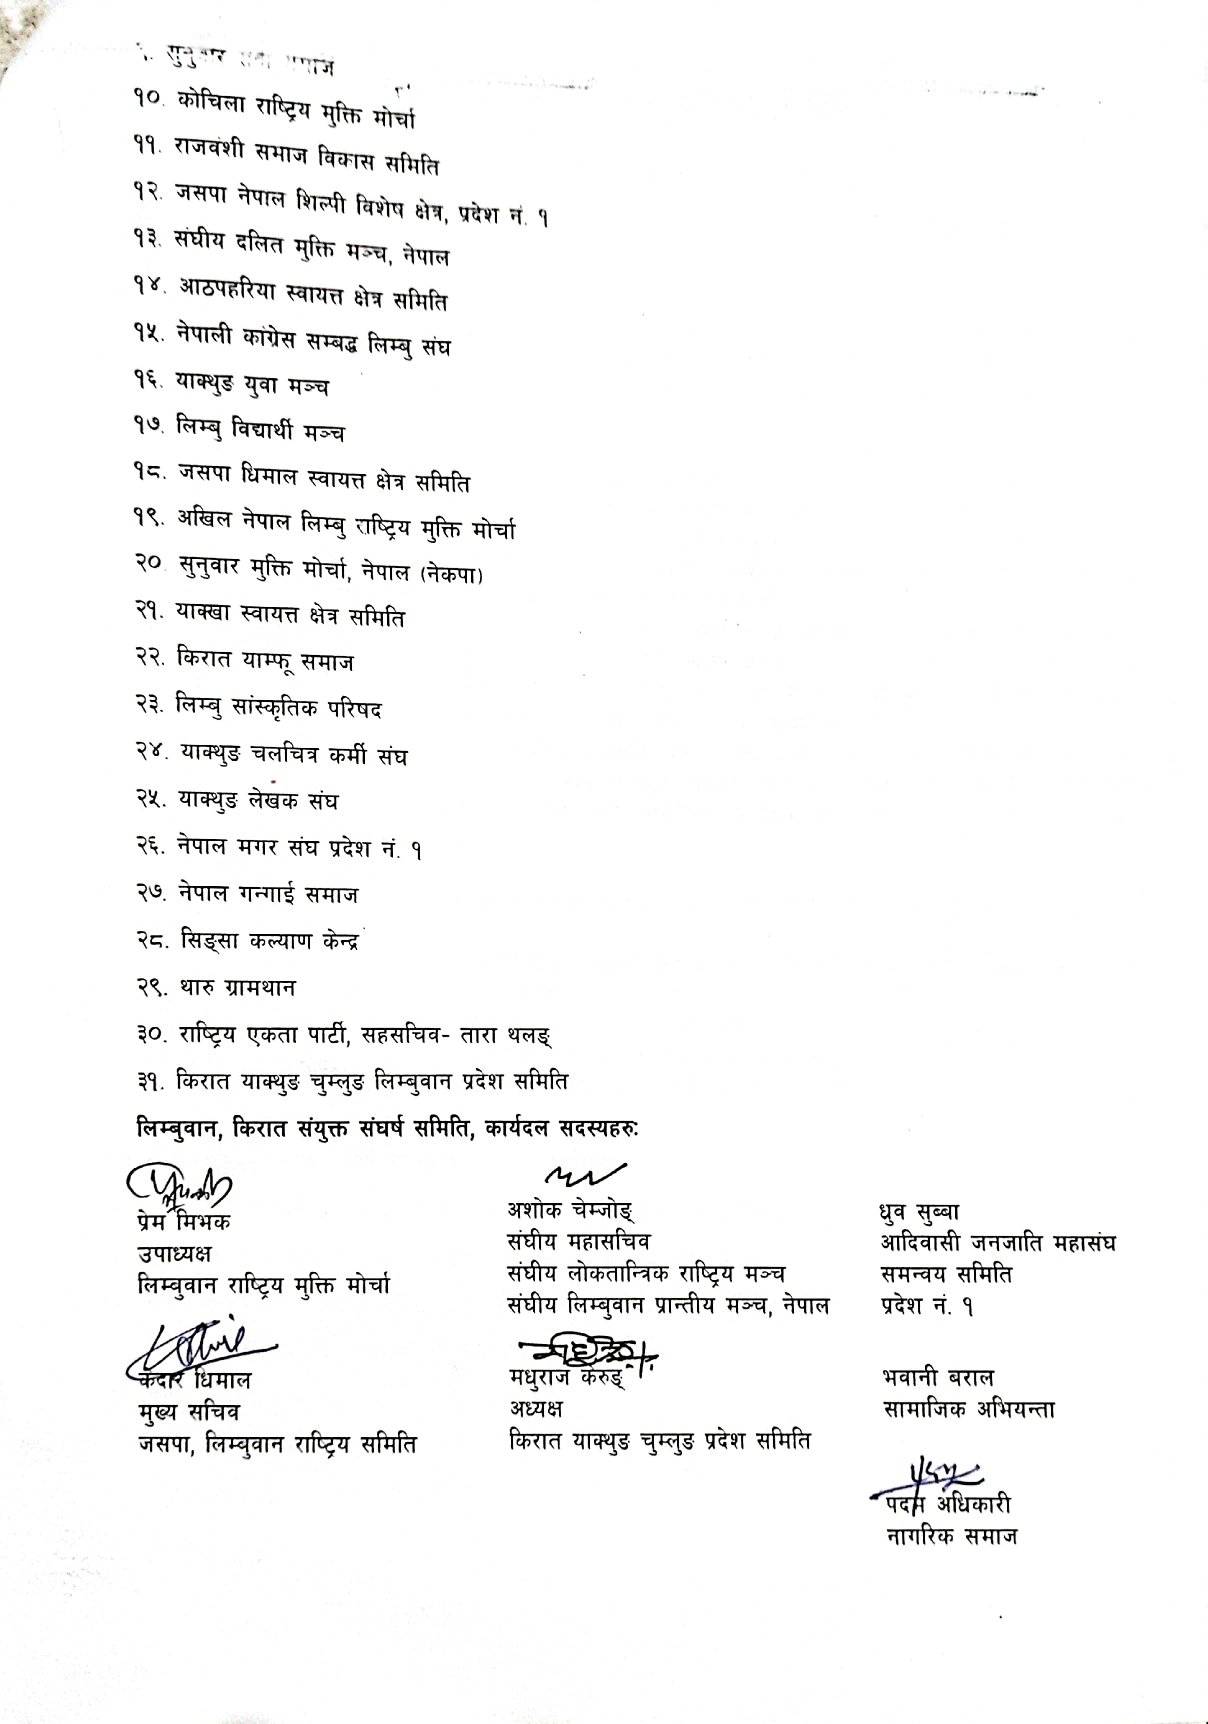 सुनुवार सेवा समाज
१०. कोचिला राष्ट्रिय मुक्ति मोर्चा
११. राजवंशी समाज विकास समिति
१२. जसपा नेपाल शिल्पी विशेष क्षेत्र, प्रदेश नं. १
१३. संघीय दलित मुक्ति मञ्च, नेपाल
१४. आठपहरिया स्वायत्त क्षेत्र समिति
१५. नेपाली कांग्रेस सम्बद्ध लिम्बु संघ
१६. याक्थुङ युवा मञ्च
१७. लिम्बु विद्यार्थी मञ्च
१८. जसपा धिमाल स्वायत्त क्षेत्र समिति
१९. अखिल नेपाल लिम्बु राष्ट्रिय मुक्ति मोर्चा
२०. सुनुवार मुक्ति मोर्चा, नेपाल (नेकपा)
२१. याक्खा स्वायत्त क्षेत्र समिति
२२. किरात याम्फू समाज
२३. लिम्बु सांस्कृतिक परिषद
२४. याक्थुङ चलचित्र कर्मी संघ
२५. याक्थुङ लेखक संघ
२६. नेपाल मगर संघ प्रदेश नं. १
२७. नेपाल गन्गाई समाज
२८. सिङ्सा कल्याण केन्द्र
२९. थारु ग्रामथान
३०. राष्ट्रिय एकता पार्टी, सहसचिव- तारा थलङ्
३१. किरात याक्थुङ चुम्लुङ लिम्बुवान प्रदेश समिति
लिम्बुवान, किरात संयुक्त संघर्ष समिति, कार्यदल सदस्यहरुः
प्रेम मिभक
उपाध्यक्ष
लिम्बुवान राष्ट्रिय मुक्ति मोर्चा
अशोक चेम्जोङ्
संघीय महासचिव
संघीय लोकतान्त्रिक राष्ट्रिय मञ्च
संघीय लिम्बुवान प्रान्तीय मञ्च, नेपाल
ध्रुव सुब्बा
आदिवासी जनजाति महासंघ
समन्वय समिति
प्रदेश नं. १
केदार धिमाल
मुख्य सचिव
जसपा, लिम्बुवान राष्ट्रिय समिति
मधुराज केरुङ्
अध्यक्ष
किरात याक्थुङ चुम्लुङ प्रदेश समिति
भवानी बराल
सामाजिक अभियन्ता
पदम अधिकारी
नागरिक समाज